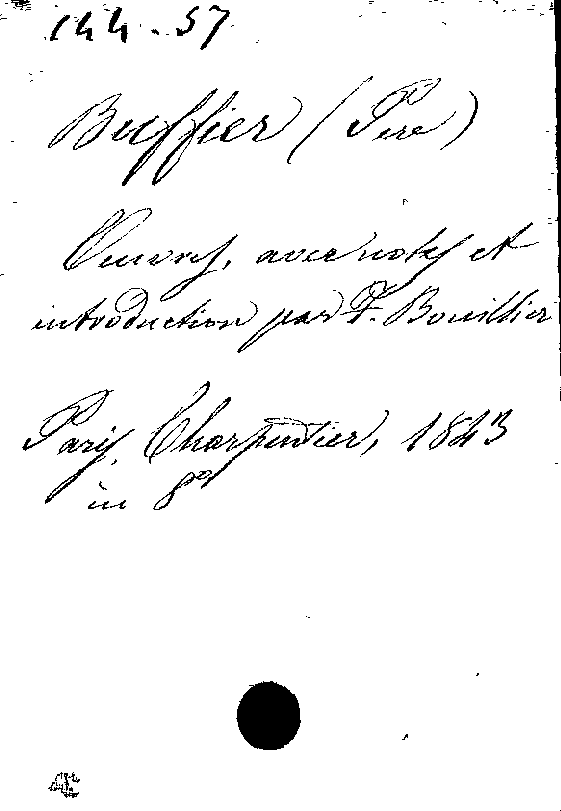 144.57
Buffier (Père)
Œuvres, avec notes et
introduction par F. Bouillier
Paris, Charpentier, 1843
in 8º